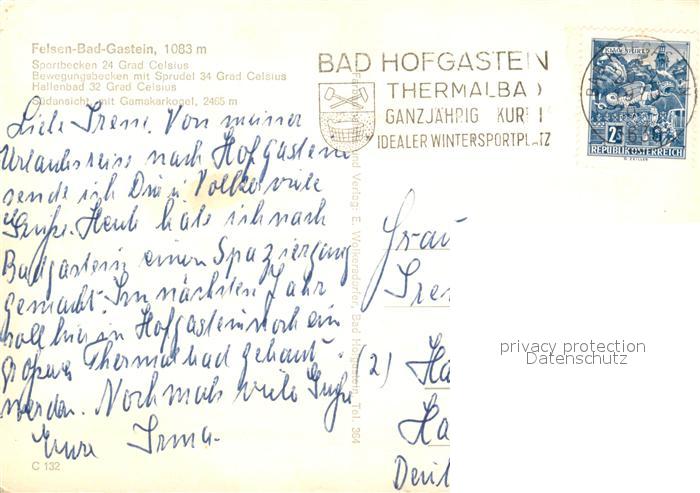 Felsen-Bad-Gastein, 1083 m
Sportbecken 24 Grad Celsius
Bewegungsbecken mit Sprudel 34 Grad Celsius
Hallenbad 32 Grad Celsius
Südansicht mit Gamskarkogel, 2465 m
BAD HOFGASTEIN
THERMALBAD
GANZJÄHRIG KUR
IDEALER WINTERSPORTPLATZ
2S
REPUBLIK ÖSTERREICH
Liebe Irene. Von meiner
Urlaubsreise nach Hofgastein
sende ich Dir u. Volker viele
Grüße. Heute habe ich nach
Badgastein einen Spaziergang
gemacht. Im nächsten Jahr
soll hier in Hofgastein noch ein
großes Thermalbad gebaut
werden. Nochmals viele Grüße
Eure Irma.
C 132
und Verlag: E. Wolkersdorfer, Bad Hofgastein, Tel. 364
Frau
Iren
(2) Ha
Ha
Deut
privacy protection
Datenschutz